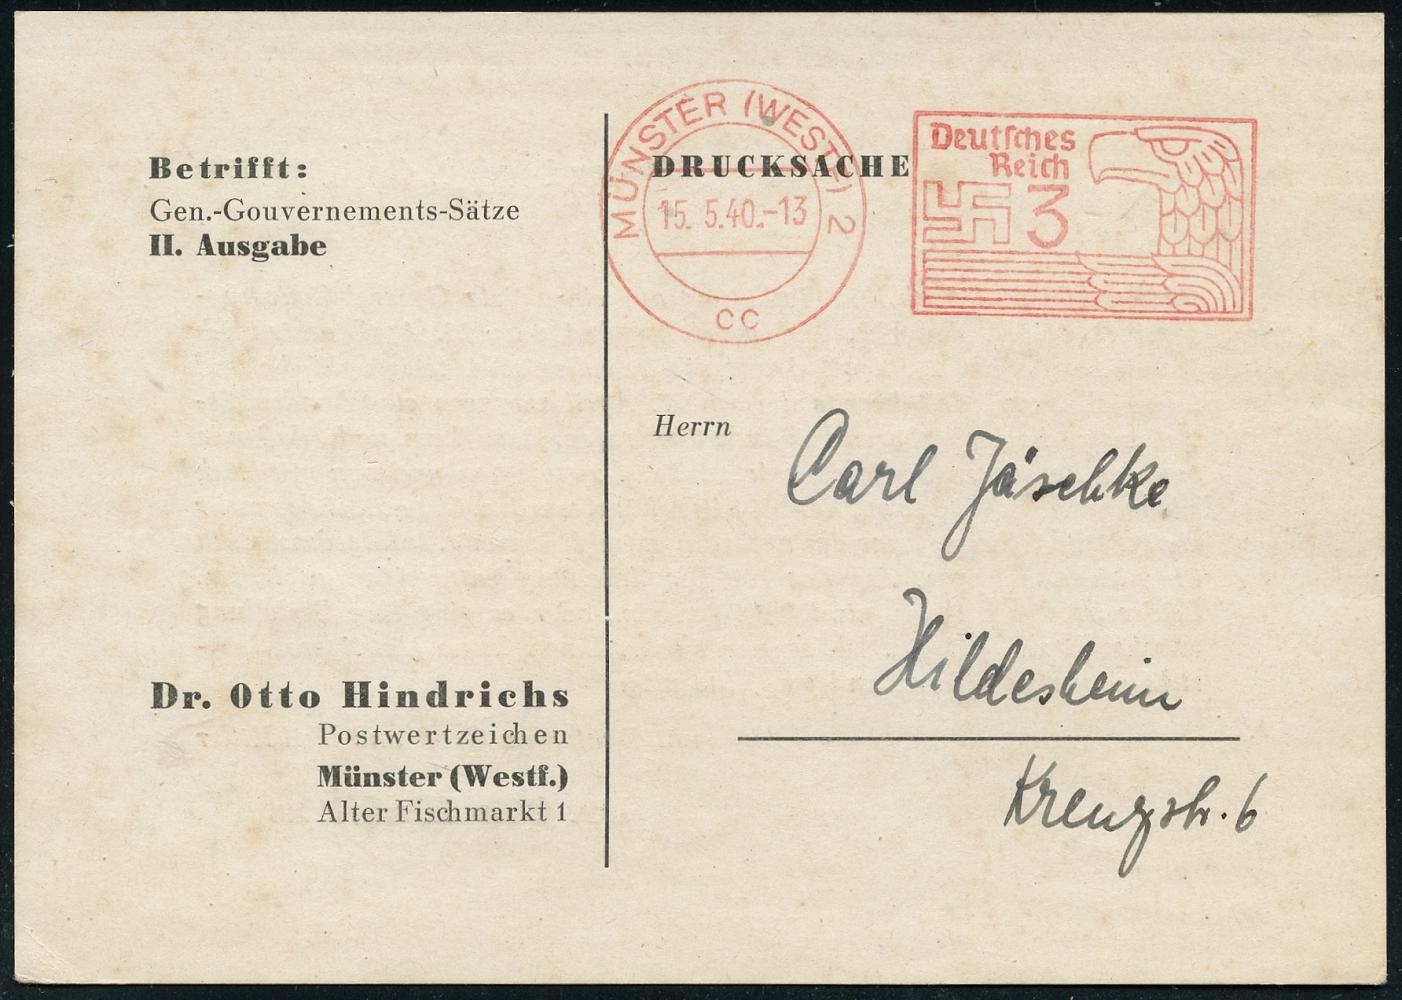 Betrifft:
Gen.-Gouvernements-Sätze
II. Ausgabe
MÜNSTER (WESTF) 2
15. 5.40.-13
cc
DRUCKSACHE
Deutsches
Reich
3
Herrn
Carl Jäschke
Hildesheim
Kreuzstr. 6
Dr. Otto Hindrichs
Postwertzeichen
Münster (Westf.)
Alter Fischmarkt 1